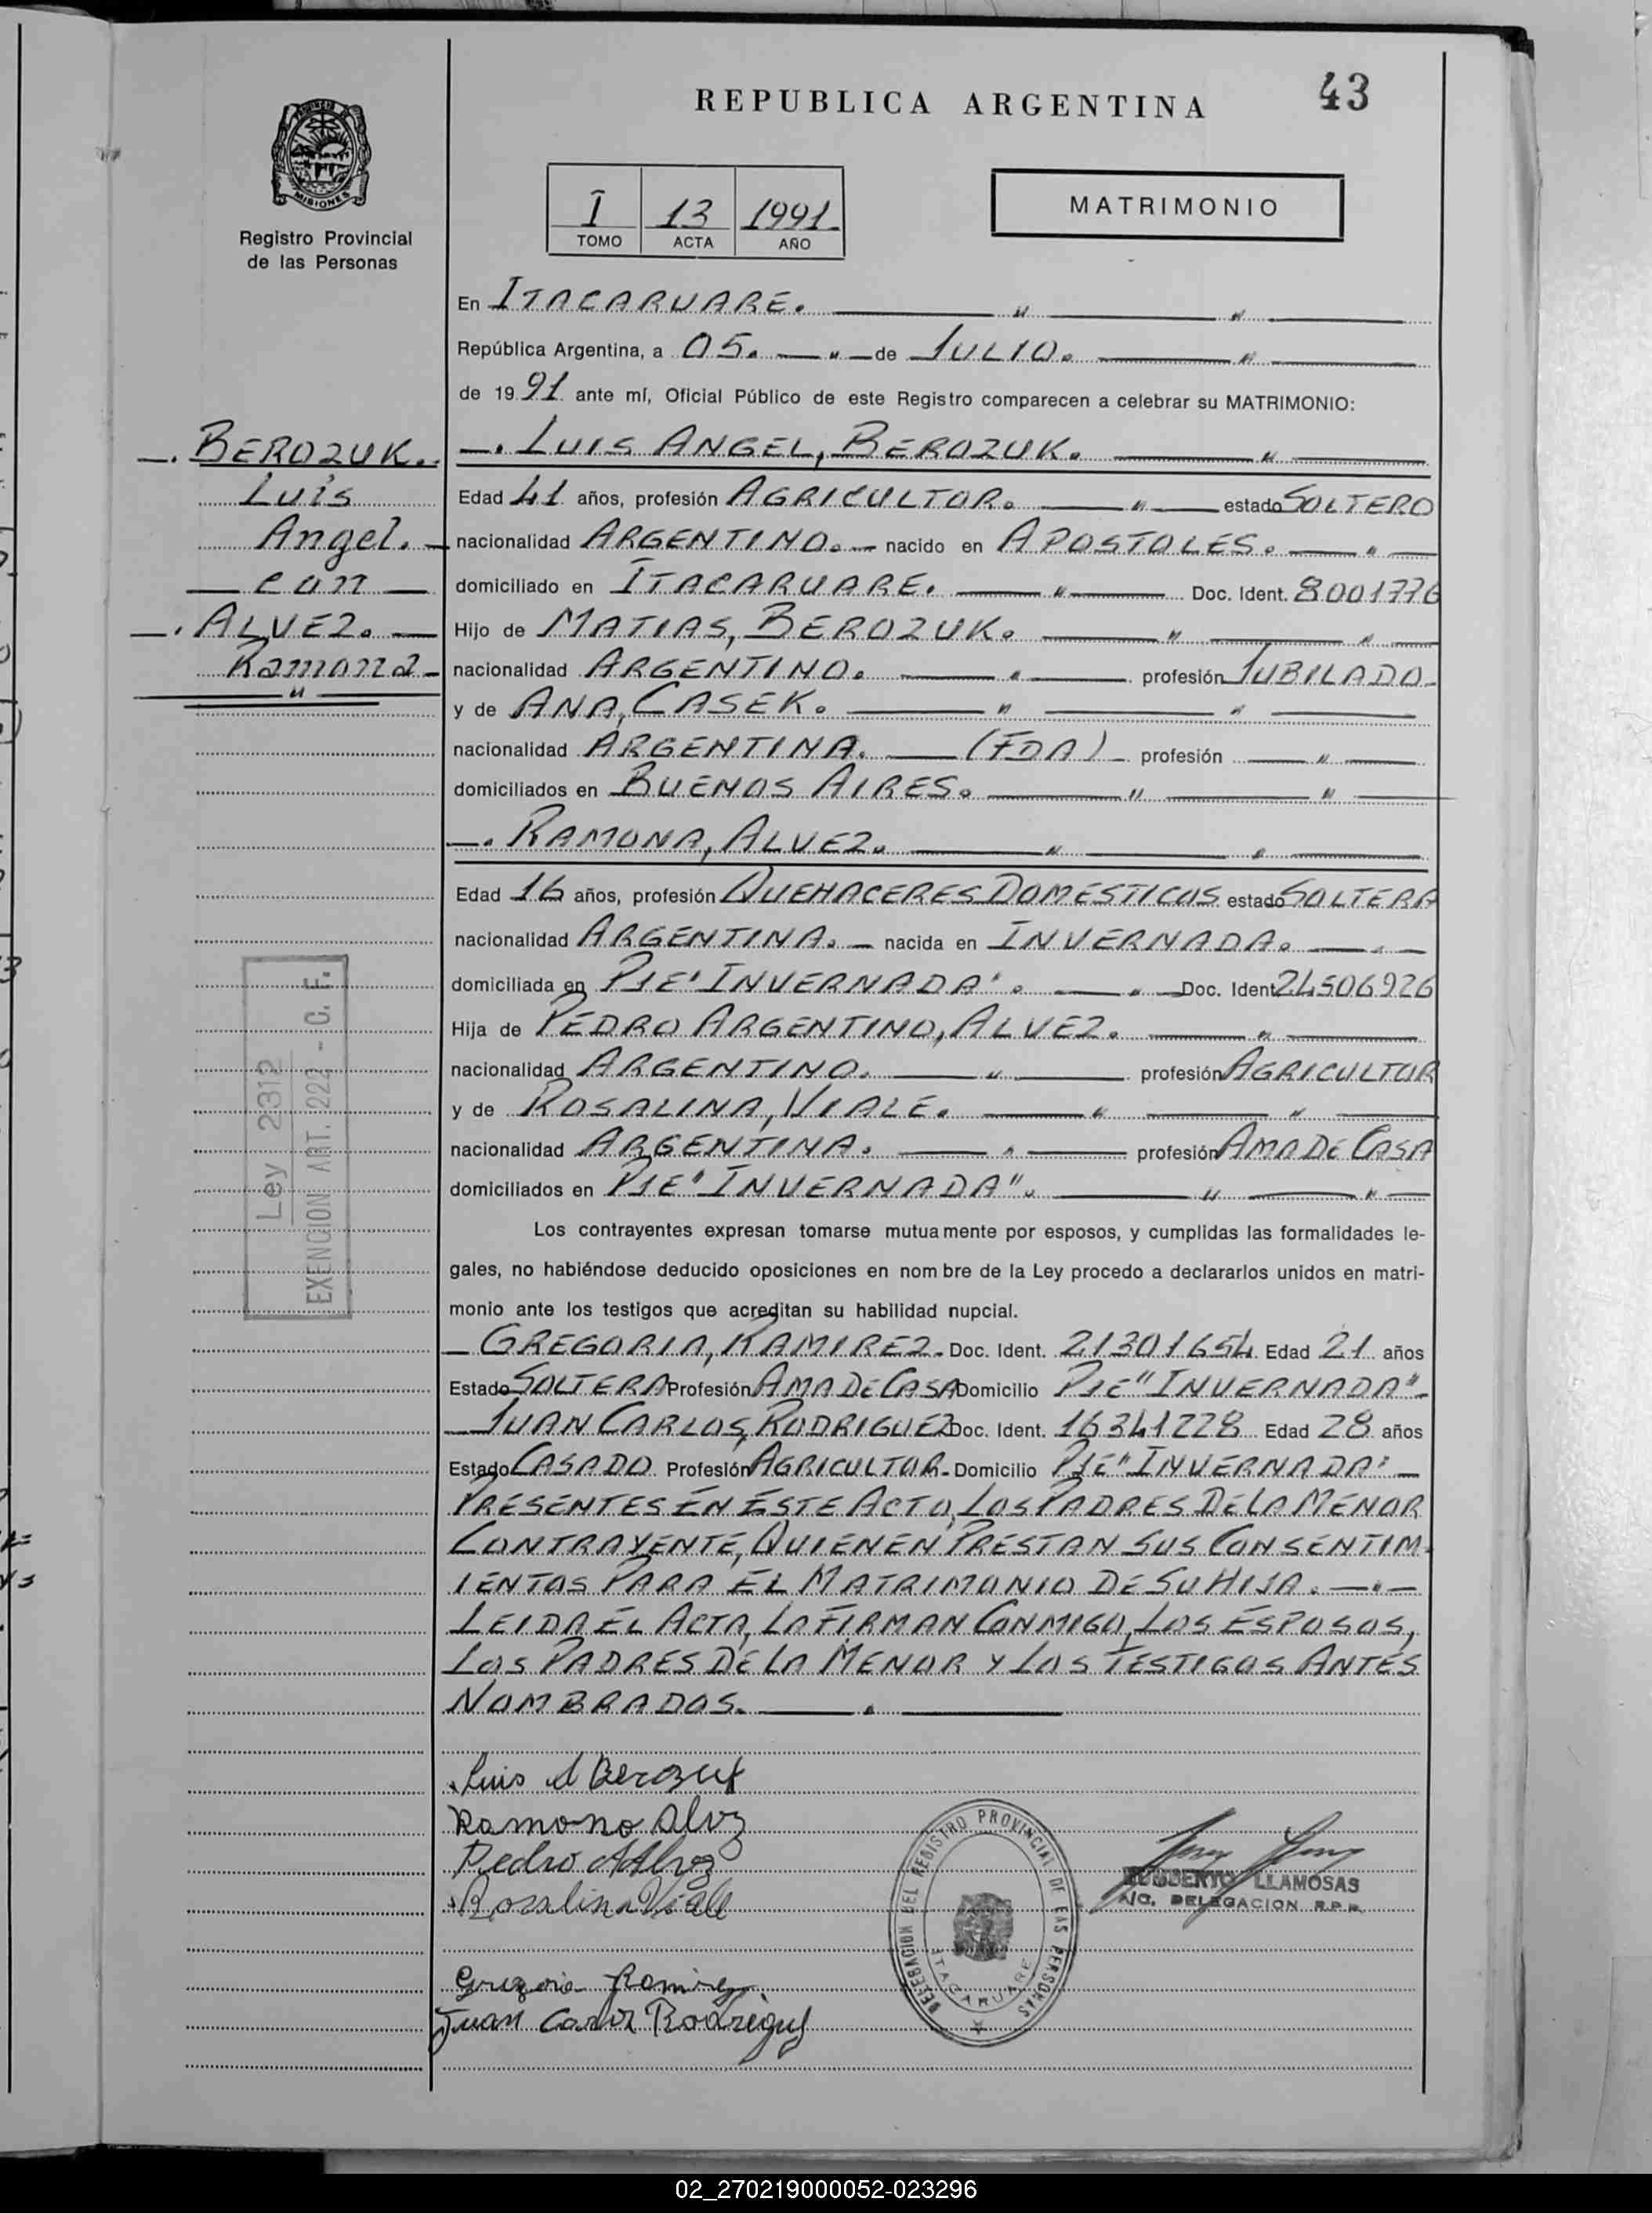 43
REPUBLICA ARGENTINA
MISIONES
Registro Provincial
de las Personas
I 13 1991
TOMO ACTA AÑO
MATRIMONIO
En ITACARUARE.
República Argentina, a 05. de JULIO.
de 1991 ante mí, Oficial Público de este Registro comparecen a celebrar su MATRIMONIO:
BEROZUK.
Luis
Angel.
con
ALVEZ.
Ramona
LUIS ANGEL, BEROZUK.
Edad 41 años, profesión AGRICULTOR. estado SOLTERO
nacionalidad ARGENTINO. nacido en APOSTOLES.
domiciliado en ITACARUARE. Doc. Ident. 8001776
Hijo de MATIAS, BEROZUK.
nacionalidad ARGENTINO. profesión JUBILADO
y de ANA, CASEK.
nacionalidad ARGENTINA. (FDA) profesión
domiciliados en BUENOS AIRES.
RAMONA, ALVEZ.
Edad 16 años, profesión QUEHACERES DOMESTICOS estado SOLTERA
nacionalidad ARGENTINA. nacida en INVERNADA.
domiciliada en PJE"INVERNADA". Doc. Ident. 24506926
Hija de PEDRO ARGENTINO, ALVEZ.
nacionalidad ARGENTINO. profesión AGRICULTOR
y de ROSALINA, VIALE.
nacionalidad ARGENTINA. profesión AMA DE CASA
domiciliados en PJE"INVERNADA".
Ley 2312
EXENCION ART. 222 - C. F.
Los contrayentes expresan tomarse mutuamente por esposos, y cumplidas las formalidades le-
gales, no habiéndose deducido oposiciones en nombre de la Ley procedo a declararlos unidos en matri-
monio ante los testigos que acreditan su habilidad nupcial.
GREGORIA, RAMIREZ. Doc. Ident. 21301654 Edad 21 años
Estado SOLTERA Profesión AMA DE CASA Domicilio PJE"INVERNADA"
JUAN CARLOS, RODRIGUEZ Doc. Ident. 16341228 Edad 28 años
Estado CASADO Profesión AGRICULTOR Domicilio PJE"INVERNADA"
PRESENTES EN ESTE ACTO, LOS PADRES DE LA MENOR
CONTRAYENTE, QUIENEN PRESTAN SUS CONSENTIM
IENTOS PARA EL MATRIMONIO DE SU HIJA.
LEIDA EL ACTA, LA FIRMAN CONMIGO, LOS ESPOSOS,
LOS PADRES DE LA MENOR Y LOS TESTIGOS ANTES
NOMBRADOS.
Luis A Berozuk
Ramona Alvz
Pedro A Alvez
Rosalina Viale
Gregoria Ramirez
Juan Carlos Rodriguez
DELEGACION DEL REGISTRO PROVINCIAL DE LAS PERSONAS
ITACARUARE
HUMBERTO LLAMOSAS
A/C. DELEGACION R.P.P.
02_270219000052-023296